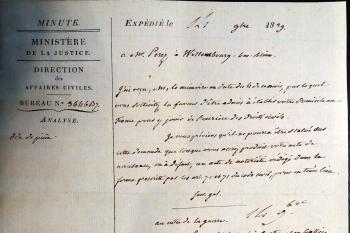 MINUTE.
MINISTÈRE
DE LA JUSTICE.
DIRECTION
des
AFFAIRES CIVILES.
BUREAU N.°
ANALYSE.
EXPÉDIÉ le
a M. Perez, à Wissembourg, bas-Rhin.
J'ai reçu, M., le mémoire en date du de ce mois, par lequel
vous sollicitez la faveur d'être admis à établir votre domicile en
France pour y jouir de l'exercice des droits civils.
Je vous préviens qu'il ne pourra être statué sur
cette demande que lorsque vous aurez produit votre acte de
naissance, ou à défaut, un acte de notoriété rédigé dans la
forme prescrite par les art. 70 et 71 du code civil, pour en tenir lieu.
au ministre de la guerre.